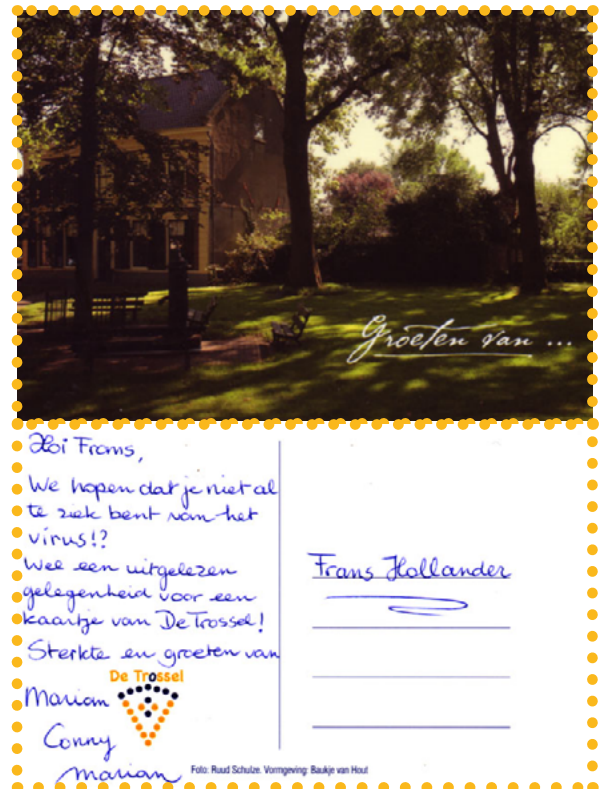 Groeten van ...
Hoi Frans,
We hopen dat je niet al
te ziek bent van het
virus!?
Wel een uitgelezen
gelegenheid voor een
kaartje van De Trossel!
Sterkte en groeten van
De Trossel
Marian
Conny
Marian
Frans Hollander
Foto: Ruud Schulze. Vormgeving: Baukje van Hout